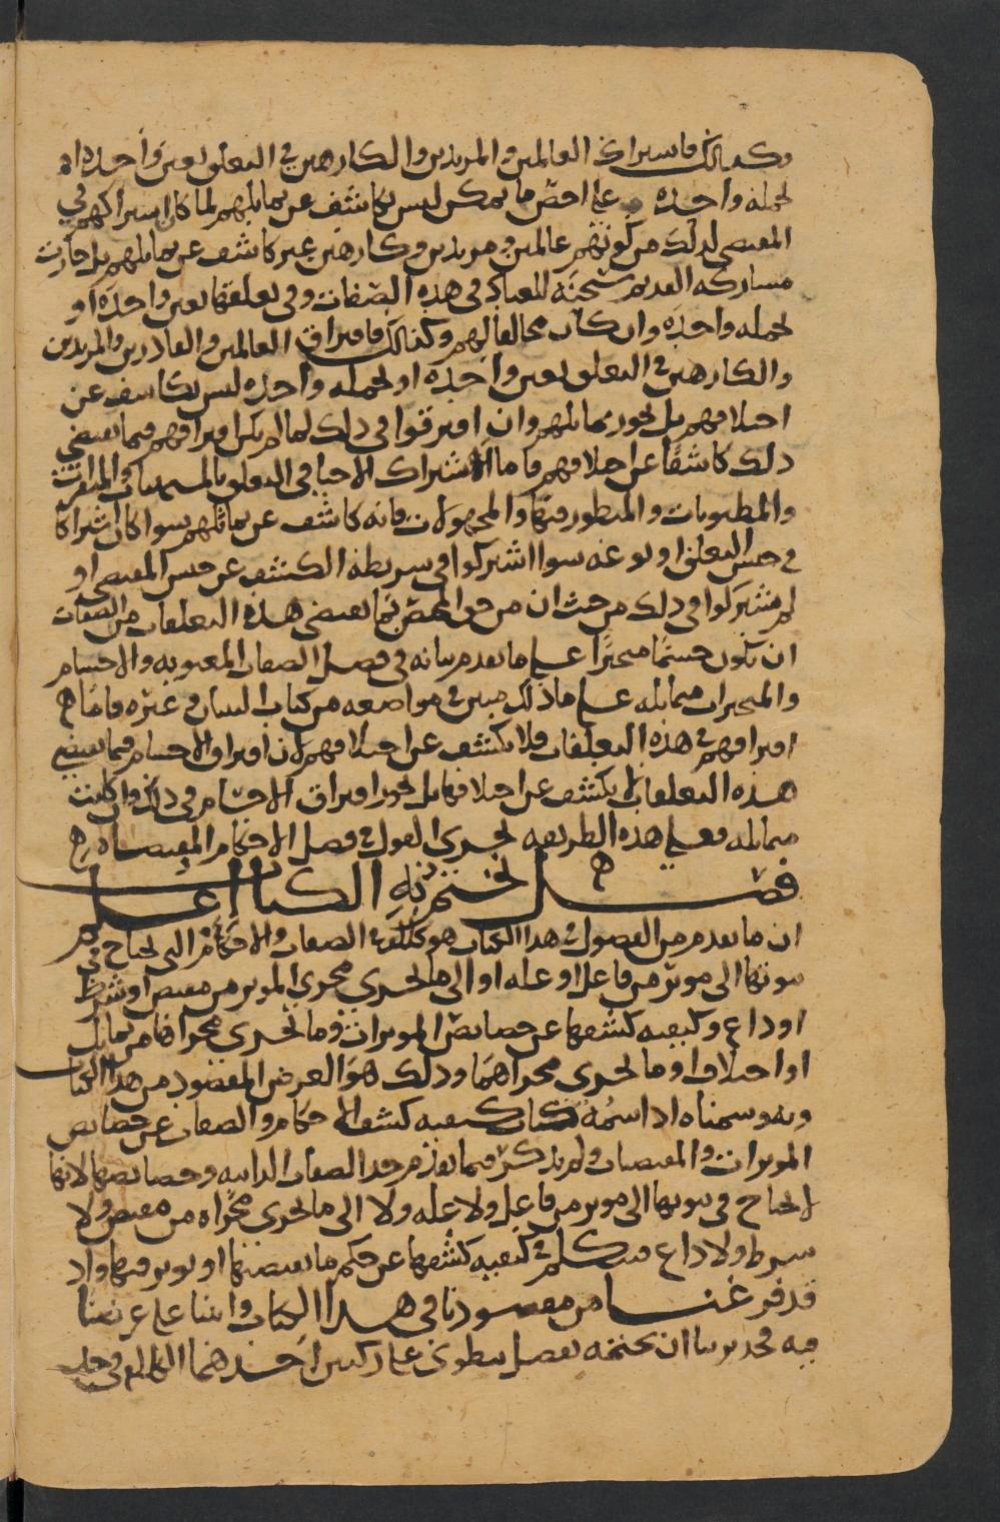 وكذلك فاشتراك العالمين والمريدين والكارهين في التعلق بعين واحدة او
لجملة واحدة على اخص ما يمكن ليس بكاشف عن تماثلهم لما كان اشتراكهم في
المقتضي لذلك من كونهم عالمين ومريدين وكارهين غير كاشف عن تماثلهم بل جازت
مشاركة القديم سبحنه للعباد في هذه الصفات وفي تعلقها بعين واحدة او
لجملة واحدة وان كان مخالفا لهم وكذلك فافتراق العالمين والقادرين والمريدين
والكارهين في التعلق بعين واحدة او لجملة واحدة ليس بكاشف عن
اختلافهم بل يجوز تماثلهم وان افترقوا في ذلك لما لم يكن افتراقهم فيما يقتضي
ذلك كاشفا عن اختلافهم فاما اشتراك الاحيا في التعلق بالمشتهيات والمنفرات
والمظنونات والمنظور فيها والمجهولات فانه كاشف عن تماثلهم سوا كان اشتراكا
في جنس التعلق او نوعه سوا اشتركوا في شريطة الكشف عن جنس المقتضي او
لم يشتركوا في ذلك من حيث ان من حق المختص بما يقتضي هذه التعلقات من الصفات
ان يكون جسما متحيزا على ما تقدم بيانه في فصل الصفات المعنوية والاجسام
والمتحيزات متماثلة على ما ذلك مبين في مواضعه من كتاب البيان وغيره فاما
افتراقهم في هذه التعلقات فلا يكشف عن اختلافهم لان افتراق الاجسام فيما يقتضي
هذه التعلقات لا يكشف عن اختلافها بل يجوز افتراق الاجسام في ذلك وان كانت
متماثلة فعلى هذه الطريقة يجري القول في فصل الاحكام المقتضاة
فصل نختم به الكتاب اعلم
ان ما تقدم من الفصول في هذا الكتاب هو كلام في الصفات والاحكام التي تحتاج في
ثبوتها الى موثر من فاعل او علة او الى ما يجري مجرى الموثر من مقتض او شرط
او داع وكيفية كشفها عن خصايص الموثرات وما يجري مجراها من تماثل
او اختلاف او ما يجري مجراهما وذلك هو الغرض المقصود من هذا الكتاب
وبه وسمناه اذ اسمه كتاب كيفية كشف الاحكام والصفات عن خصايص
الموثرات والمقتضيات ولم يذكر فيما تقدم حد الصفات الذاتية وخصايصها لانها
لا تحتاج في ثبوتها الى موثر من فاعل ولا علة ولا الى ما يجري مجراه من مقتض ولا
شرط ولا داع فنتكلم في كيفية كشفها عن حكم ما يقتضيها او يوثر فيها واذ
قد فرغنا من مقصودنا في هذا الكتاب واتينا على غرضنا
فيه فجدير بنا ان نختمه بفصل ينطوي على ركنين احدهما الكلام في حد